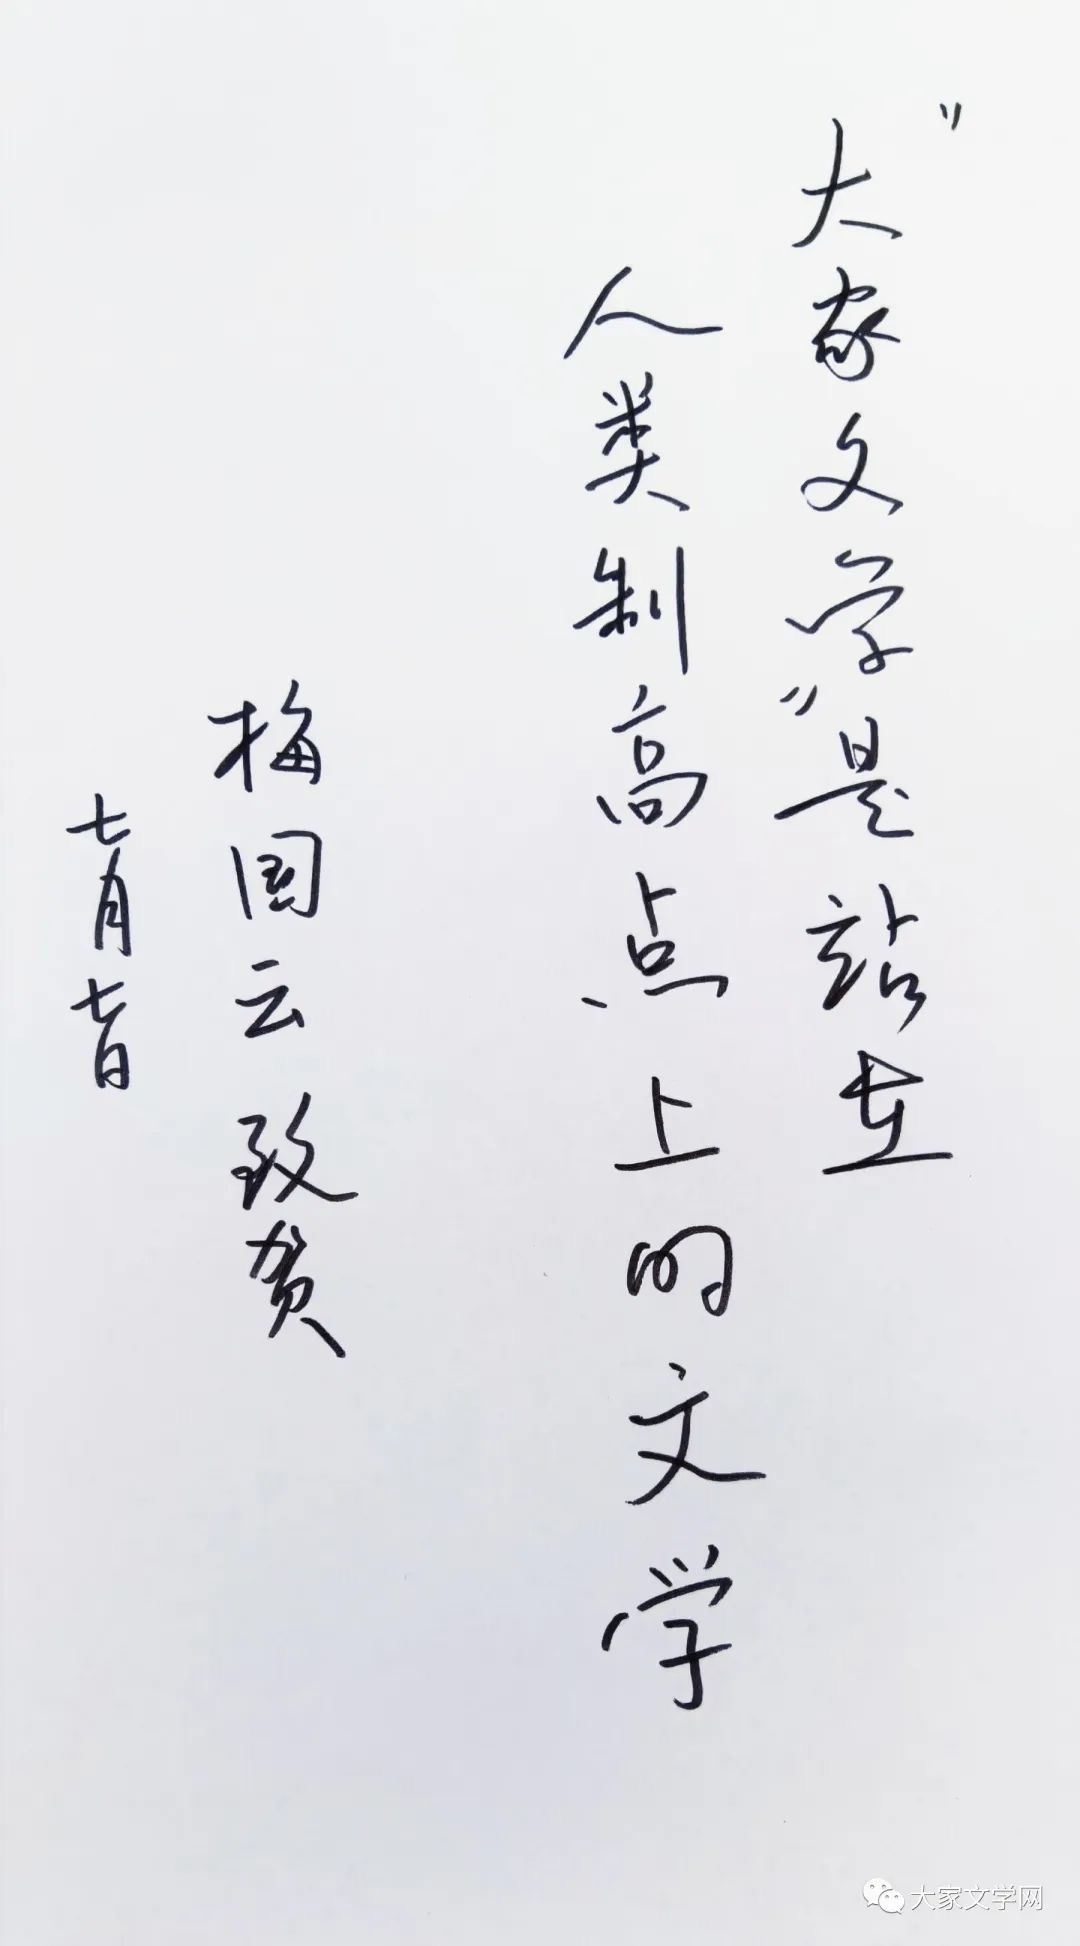 “大家文学”是站在
人类制高点上的文学
梅国云致贺
七月七日
大家文学网